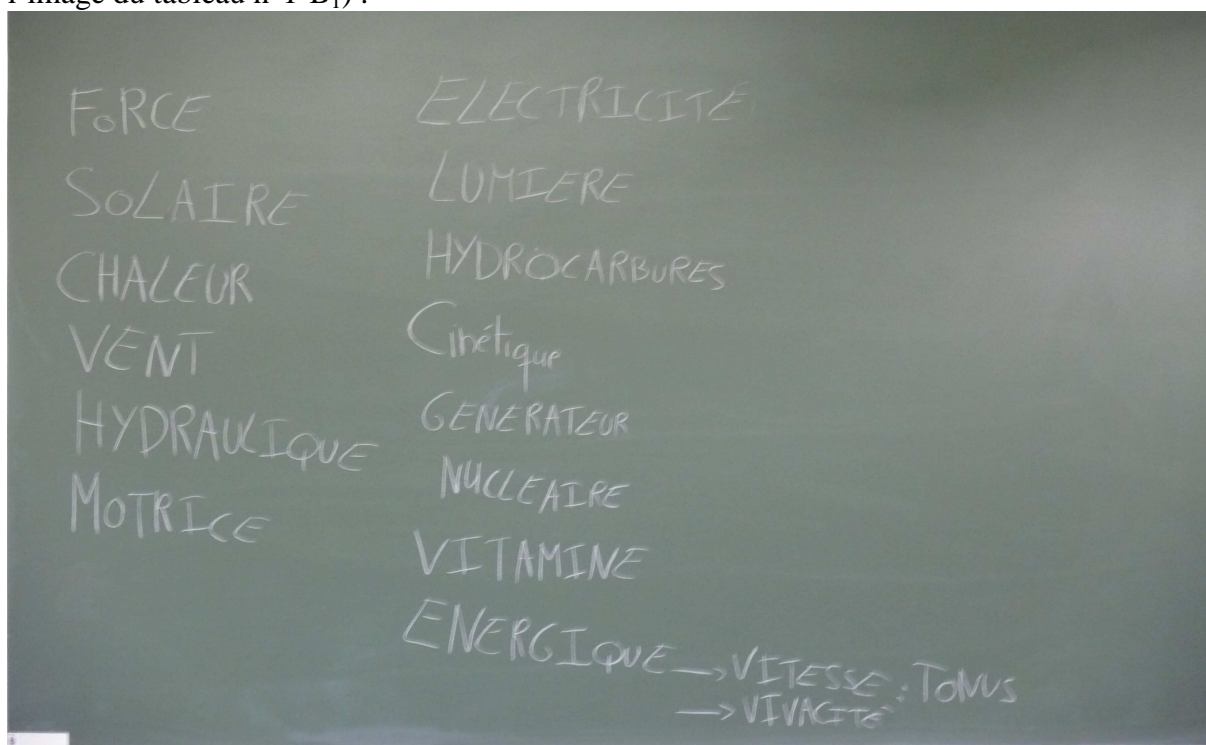 l'image du tableau n°1-B₁) :
FORCE
SOLAIRE
CHALEUR
VENT
HYDRAULIQUE
MOTRICE
ELECTRICITÉ
LUMIERE
HYDROCARBURES
Cinétique
GENERATEUR
NUCLEAIRE
VITAMINE
ENERGIQUE → VITESSE ; TONUS
→ VIVACITÉ